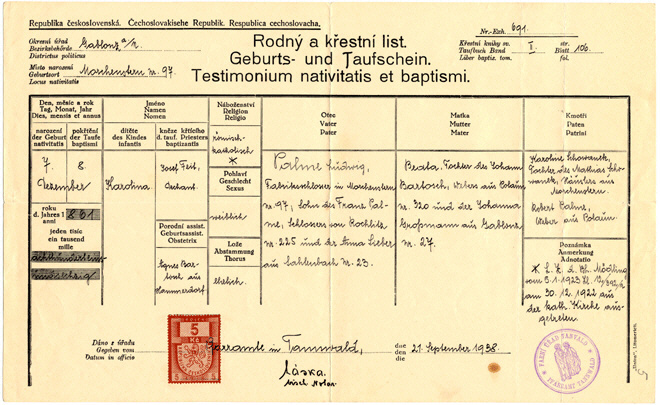 Republika československá. Čechoslovakische Republik. Respublica cechoslovacha.
Nr.-Exh. 691.
Okresní úřad
Bezirksbehörde
Districtus politicus
Gablonz a/N.
Místo narození
Geburtsort
Locus nativitatis
Morchenstern nr. 97.
Rodný a křestní list.
Geburts- und Taufschein.
Testimonium nativitatis et baptismi.
Křestní knihy sv.
Taufbuch Band
Liber baptis. tom.
I.
str.
Blatt
fol.
106.
Den, měsíc a rok
Tag, Monat, Jahr
Dies, mensis et annus
narození
der Geburt
nativitatis
pokřtění
der Taufe
baptismi
7.
8.
Dezember
roku
d. Jahres
anni
1861
jeden tisíc
ein tausend
mille
Jméno
Namen
Nomen
dítěte
des Kindes
infantis
Karolina
kněze křtícího
d. tauf. Priesters
baptizantis
Josef Feit,
Dechant.
Porodní assist.
Geburtsassist.
Obstetrix
Agnes Bar-
tosch aus
Hammersdorf
Náboženství
Religion
Religio
römisch-
katholisch
*
Pohlaví
Geschlecht
Sexus
weiblich
Lože
Abstammung
Thorus
ehelich.
Otec
Vater
Pater
Palme Ludwig,
in Morchenstern
nr. 97, Sohn des Franz Pal-
me, von Rochlitz
nr. 225 und der Anna Lieber
aus nr. 23.
Matka
Mutter
Mater
Beata, Tochter des Johann
Bartosch, aus Polaun
nr. 320 und der Johanna
Großmann aus Gablonz
nr. 27.
Kmotři
Paten
Patrini
Karoline
Tochter des Mathias
aus
Morchenstern.
Robert Palme,
Weber aus Polaun.
Poznámka
Anmerkung
Adnotatio
* L. Z. d. Bh. Mödling
vom 5.1.1923
am 30.12.1922 aus
der kath. Kirche aus-
getreten.
Dáno z úřadu
Gegeben vom
Datum in officio
5
Kč
Pfarramte in Tannwald,
dne
den
die
21. September 1938.
Láska.
FARNÍ ÚŘAD TANVALD
PFARRAMT TANNWALD